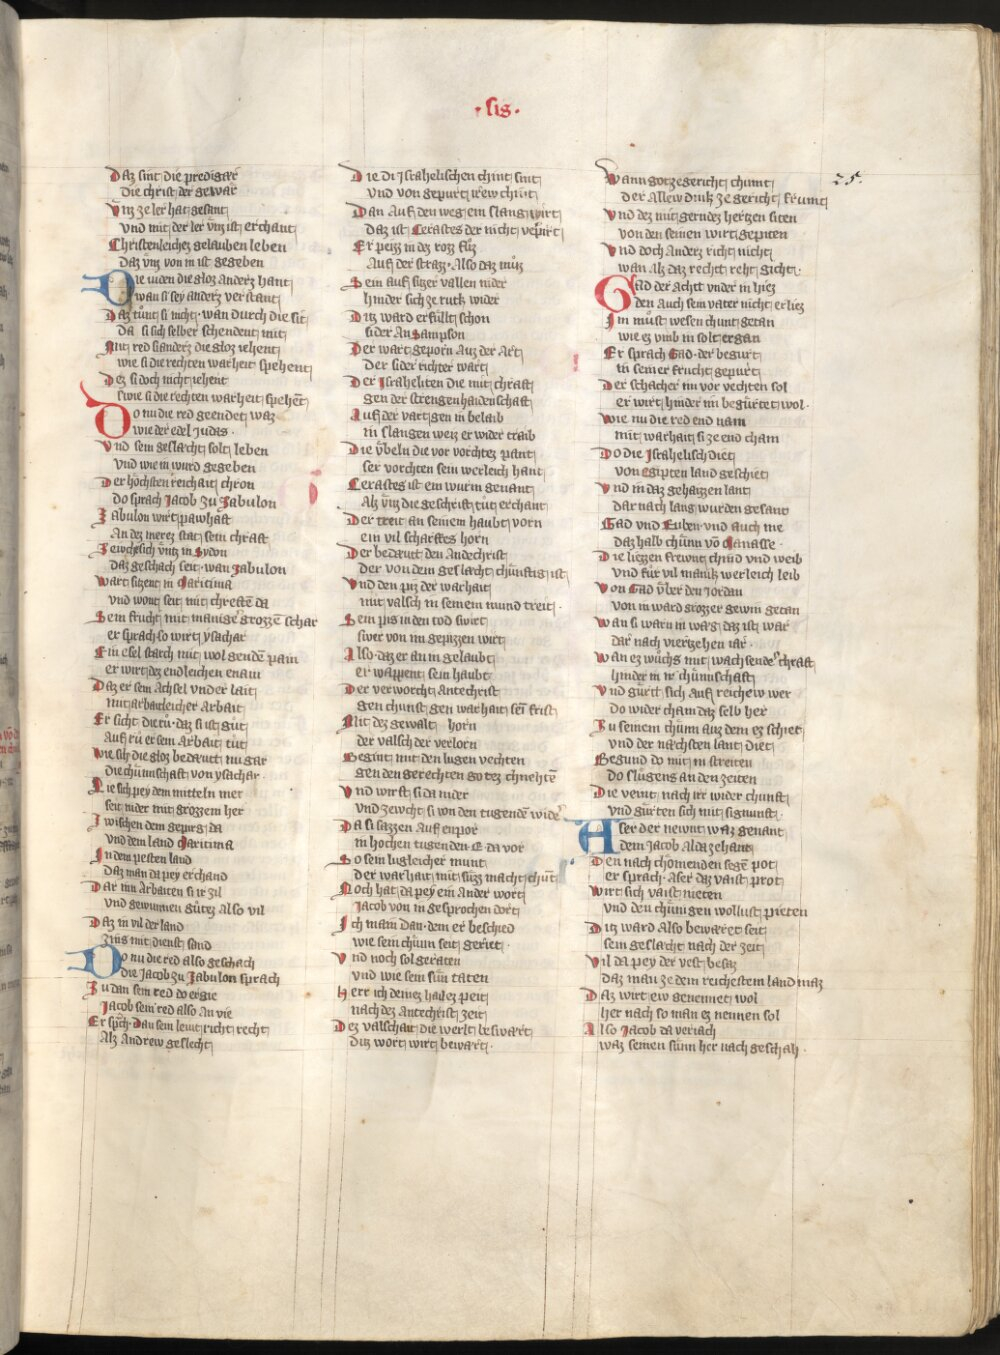 · sis ·
25.
Daz sint die predigær
die christ der gewar
Vnz ze ler hat gesant
vnd mit der ler vnz ist erchant
Christenleichez gelauben leben
daz vnz von im ist gegeben
Die iuden die gloz anderz hant
wan si sey anderz verstant
Daz tůnt si nicht · wan durch die sit
da si sich selber schendent mit
Mit red si anderz die gloz iehent
wie si die rechten warheit spehent
Dez si doch nicht iehent
swie si die rechten warheit spehēt
Do nu die red geendet waz
wie der edel Judas ·
Vnd sein geslæcht solt leben
vnd wie im wurd gegeben
Der höchsten reichait chron
do sprach Jacob zu Zabulon
Zabulon wirt pawhaft
An dez merez stat sein chraft
Zewchet sich vntz in Sydon
daz geschach seit · wan Zabulon
Wart sizent in Maritima
vnd wont seit mit chreften da
Sein frucht mit maniger grozzē schar
er sprach so wirt ysachar
Ein esel starch mit wol gendē pain
er wirt dez endleichen enain
Daz er sein Achsel vnder lait
mit arbaitleicher arbait
Er sicht die rů · daz si ist gůt
Auf rů er sein Arbait tůt
Wie sich die gloz bedæut nu gar
die chünnschaft von ysachar ·
Die sich pey dem mitteln mer
seit nider mit grozzem her
Zwischen dem gepirg da
vnd dem land Maritima
In dem pesten land
daz man da pey erchand
Dar inn Arbaiten si ir zil
vnd gewunnen gůtez also vil
Daz in vil der land
zins mit dienst sand
Do nu die red also geschach
die Jacob zu Zabulon sprach
Zu dan sein red do ergie
Jacob sein red also an vie
Er sp̄ch · Dan sein lewt richt recht
Alz Andrew geslecht
Die di Israhelischen chint sint
vnd von gepurt irew chint
Dan Auf den weg ein slang wirt
daz ist Cerastes der nicht verpirt
Er peizz in dez rozz fůz
Auf der strazz · Also daz můz
Sein auf sitzer vallen nider
hinder sich ze ruk wider
Ditz ward erfüllt schon
sider an Sampson
Der wart geporn auz der Art
der sider richter wart
Der Israheliten die mit chraft
gen der strengen haidenschaft
Auf der vart gen in belaib
in slangen weiz er wider traib
Die vbeln die vor vorchtez pant
ser vorchten sein werleich hant
Cerastes ist ein wurm genant
Alz vnz die geschrift tůt erchant
Der treit an seinem haubt vorn
ein vil scharffes horn
Der bedæut den Andechrist
der von dem geslacht chünftig ist
Vnd den piz der warhait
mit valsch in seinem mund treit ·
Sein pis in den tod swirt
swer von im gepizzen wirt
Also · daz er an in gelaubt
er wappent sein haubt
Der verworcht Antechrist
gen chunst gen warhait sēi frist
Mit dez gewalt horn
der valsch der verlorn
Begint mit den lugen vechten
gen den gerechten gotez chnehtē
Vnd wirft si da nider
vnd zewcht si von den tugendē wider
Da si sazzen Auf enpor
in hochen tugenden E da vor
So sein lugleicher munt
der warhait mit süzz macht chūt
Noch hat da pey ein Ander wort
Jacob von im gesprochen dort
Ich main Dan · dem er beschied
wie sein chünn seit geriet ·
Vnd noch sol geraten
vnd wie sein sün taten
Herr ich deinez hailez peit
nach dez Antechrist zeit
Dez valschait die werlt beswart
ditz wort wirt bewart ·
Wann gotz gericht chumt
der Allew dink ze gericht frumt
Vnd dez mit gerndez hertzen siten
von den seinen wirt gepiten
Vnd doch Anderz richt nicht
wan alz daz recht reht gicht ·
Gad der acht vnder in hiez
den auch sein vater nicht erliez
Im müst wesen chunt getan
wie ez vmb in solt ergan
Er sprach Gad · der begurt
in seiner frucht gepurt
Der schacher im vor vechten sol
er wirt hinder im begürtet wol ·
Wie nu die red end nam
mit warhait si ze end cham
Do die Israhelisch diet
von Egipten land geschiet
Vnd in daz gehaizzen lant
dar nach lang wurden gesant
Gad vnd Ruben · vnd auch me
daz halb chünn vō Manasse ·
Die liezzen frewnt chind vnd weib
vnd für vil manik werleich leib
Von Gad vber den Jordan
von in ward grozzer gewin getan
Wan si warn in warg daz ist war
dar nach vierzehen iar ·
Wan ez wůchs mit wachsender chraft
hinder in ir chünnschaft
Vnd gürt sich auf reichew wer
do wider cham daz selb her
Zu seinem chünn auz dem ez schiet
vnd der næchsten lant diet
Begund do mit in streiten
do slügens an den zeiten
Die veint nach irr wider chunft
vnd gürten sich mit signunft ·
Aser der newnt waz genant
dem Jacob alda zehant
Den nach chömenden segē pot
er sprach · Aser daz vaist prot
Wirt sich vaist nieten
vnd den chünigen wollust pieten
Ditz ward also bewæret seit
sein geslæcht nach der zeit
Vil da pey der vest besaz
daz man ze dem reichestem land maz
Daz wirt ew genennet wol
her nach so man ez nennen sol
Also Jacob da veriach
waz seinen sünn her nach geschah ·